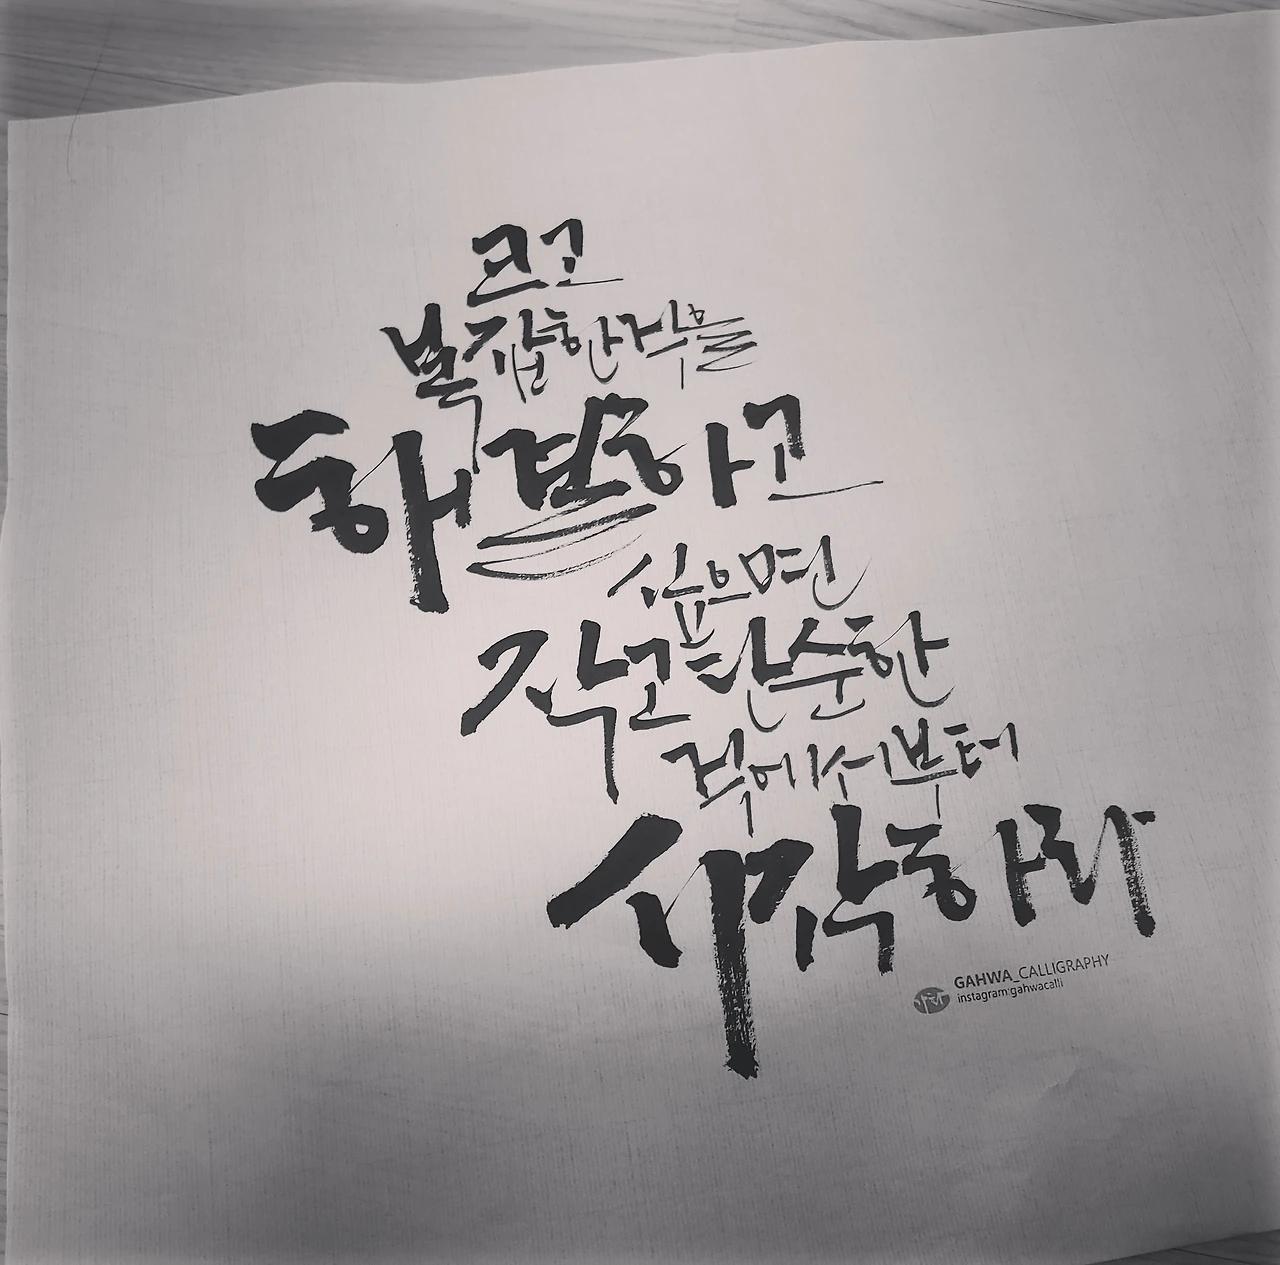 크고
복잡한것을
해결하고
싶으면
작고단순한
것에서부터
시작하라
가화
GAHWA_CALLIGRAPHY
instagram:gahwacalli